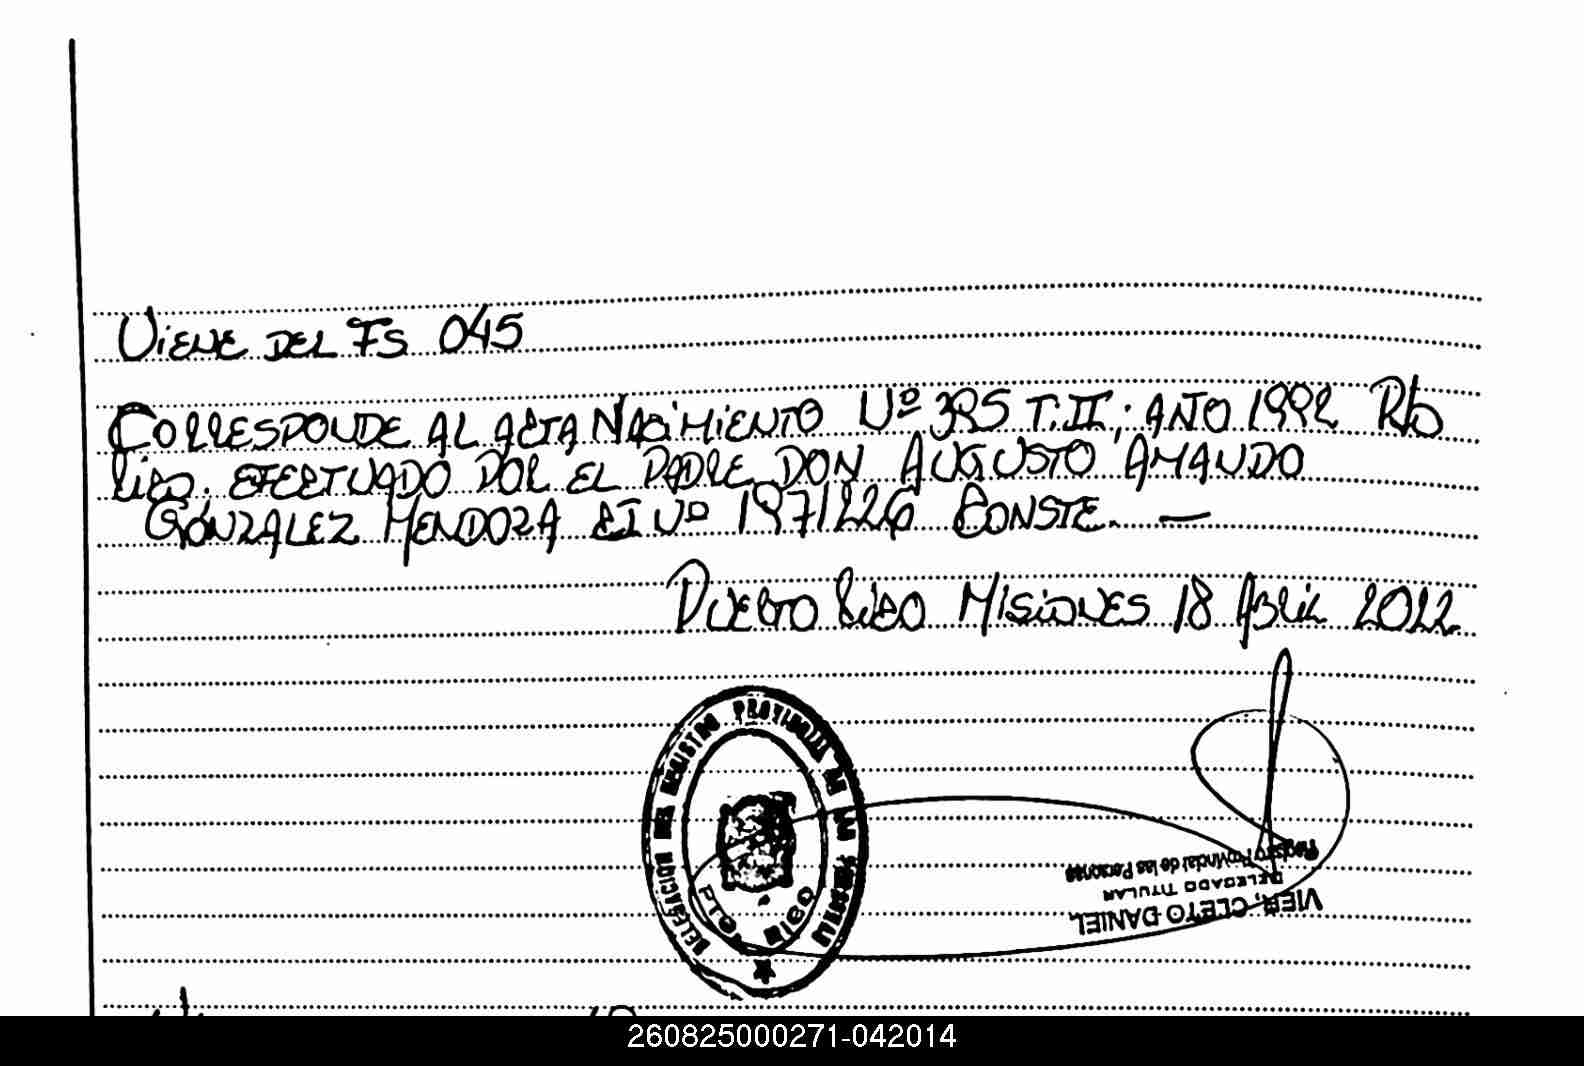 Viene del Fs 045
Corresponde al acta Nacimiento Nº 395 T.II; año 1992 Pto
Rico. efectuado por el padre Don Augusto Amando
González Mendoza CI Nº 1971226 Conste. —
Puerto Rico Misiones 18 Abril 2022
DELEGACION DEL REGISTRO PROVINCIAL DE LAS PERSONAS
PTO. RICO
VIER, CLETO DANIEL
DELEGADO TITULAR
Registro Provincial de las Personas
260825000271-042014